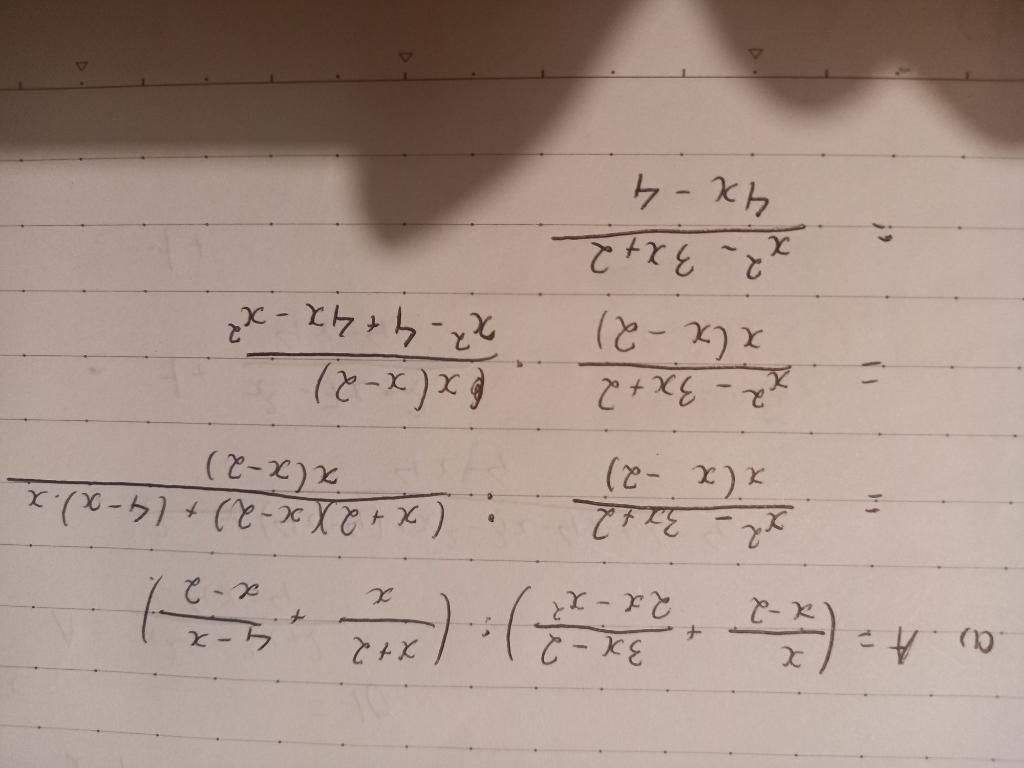 a) A = (x/(x-2) + (3x-2)/(2x-x²)) : ((x+2)/x + (4-x)/(x-2))
= (x²-3x+2)/(x(x-2)) : ((x+2)(x-2)+(4-x).x)/(x(x-2))
= (x²-3x+2)/(x(x-2)) . (x(x-2))/(x²-4+4x-x²)
= (x²-3x+2)/(4x-4)